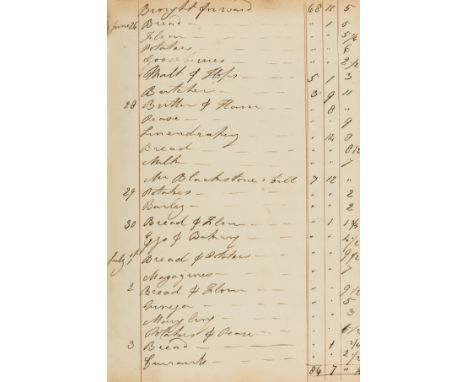 Brought forward 68 11 5
June 26 Bread " 1 5
Flour " " 5 1/2
Potatoes " " 6
Gooseberries " " 2 1/2
Malt & Hops 5 1 3
Butcher 3 9 11
28 Butter & Ham " 8 "
Pease " " 9
Linendrapery " 14 8
Bread " " 8 1/2
Milk " " 7
Mr Blackstone's bill 7 12 "
29 Potatoes " " 2
Barley " " 2
30 Bread & Flour " 1
Eggs & Baking " " 4 1/2
July 1st Bread & Potatoes " " 9 1/2
Magazines " " 7
2 Bread & Flour " " 9 1/2
Vinegar " " 5
" " 3
Potatoes & Pease " " 6 1/2
3 Bread " 1
Currants " " 2 1/2
86 7 "